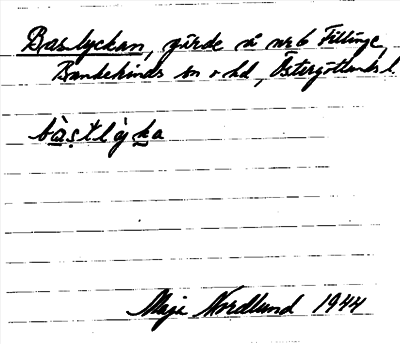 Baslyckan, gärde å nr 6 Fillinge,
Bankekinds sn o hd, Östergötlands l.
bàstlỳka
Maja Nordlund 1944